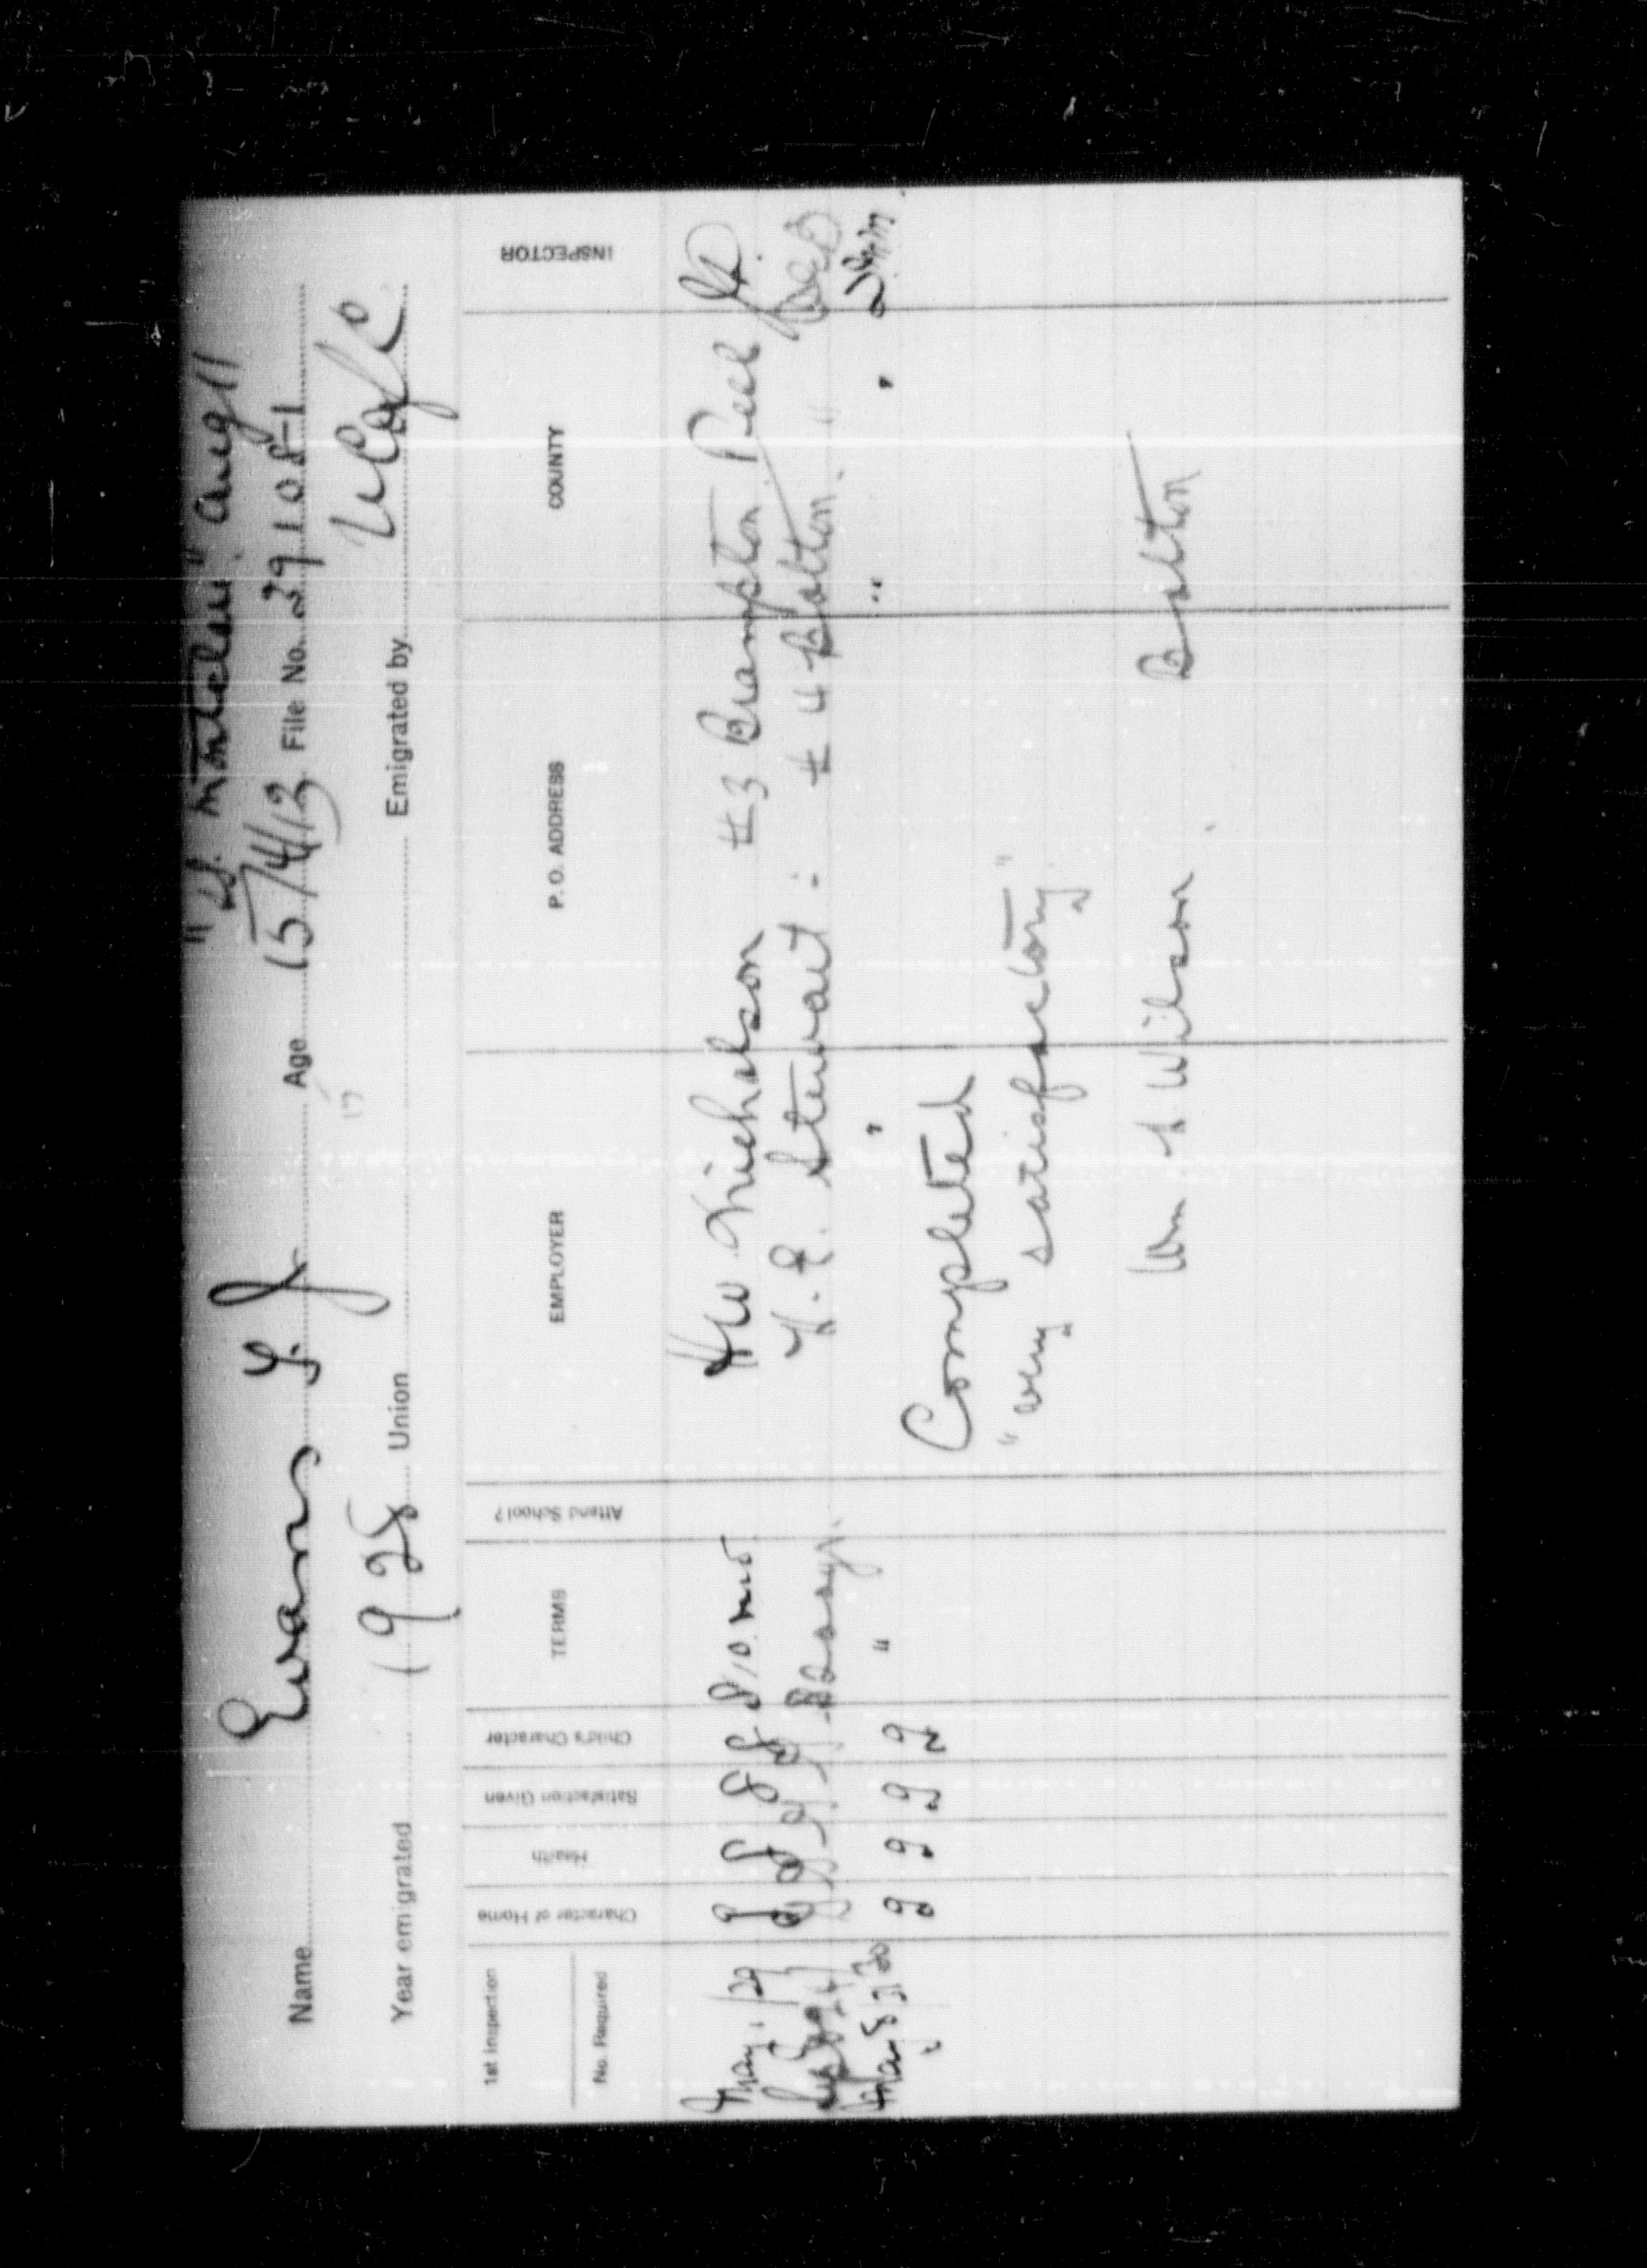 "SS. Montclare" Aug 11
Name Evans L. J Age 15/4/13 File No. 29108-1
15
Year emigrated 1928 Union Emigrated by UCofC
1st Inspection
No. Required Character of Home Health Satisfaction Given Child's Character TERMS Attend School? EMPLOYER P. O. ADDRESS COUNTY INSPECTOR
May 1/29 g g g g $10. mo HW Nicholson #3 Brampton Peel
g g g g H. E. Stewart #4 Bolton "
May 8/30 g g g g " "
Completed
"very satisfactory"
Wm J Wilson Bolton